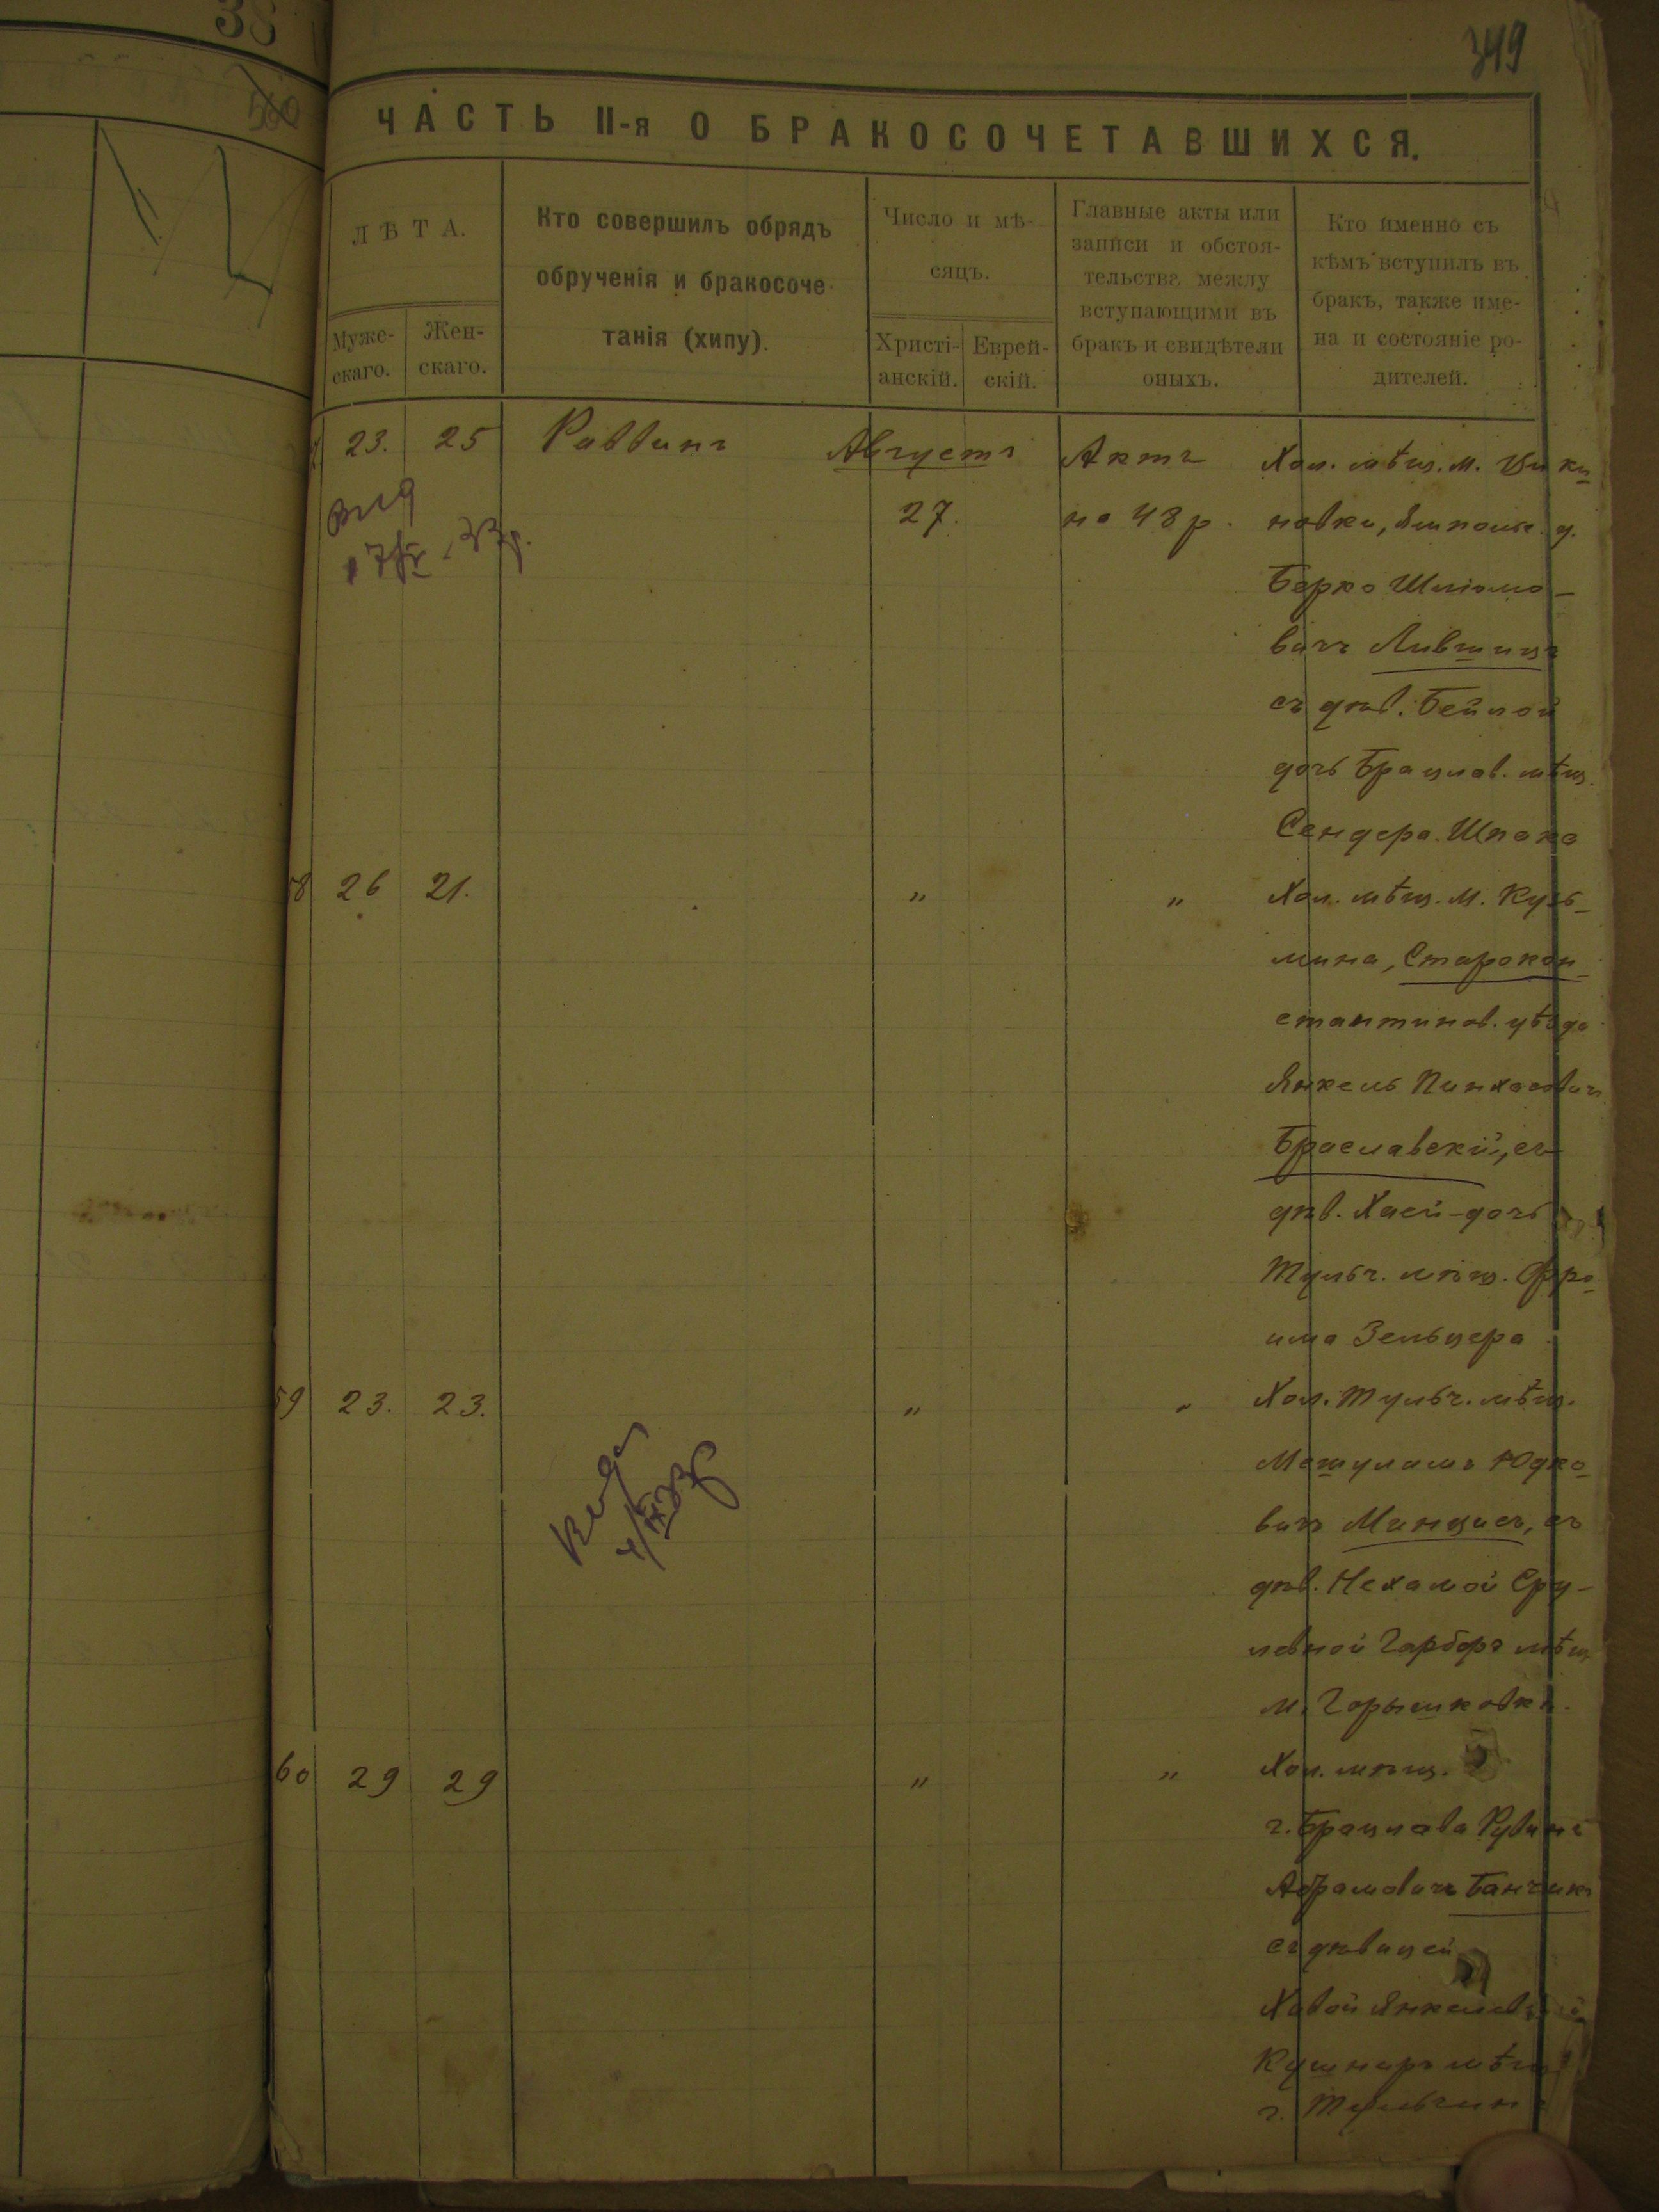 38
349
560
ЧАСТЬ II-я О БРАКОСОЧЕТАВШИХСЯ.
ЛѢТА.
Муже-
скаго.
Жен-
скаго.
Кто совершилъ обрядъ
обрученія и бракосоче
танія (хипу).
Число и мѣ-
сяцъ.
Христі-
анскій.
Еврей-
скій.
Главные акты или
записи и обстоя-
тельства между
вступающими въ
бракъ и свидѣтели
оныхъ.
Кто именно съ
кѣмъ вступилъ въ
бракъ, также име-
на и состояніе ро-
дителей.
23. 25 Раввинъ Августъ Актъ Хол. мѣщ. м.
27. на 48 р. новки, Ямполь. у.
Берко Шліомо-
вичъ Лившицъ
съ дѣв. Бейлой
дочь Брацлав. мѣщ.
Сендера Шпака
58 26 21. " " Хол. мѣщ. м. Кузь-
мина, Старокон-
стантинов. уѣзда
Янкель Пинхасович
Браславскій, съ
дѣв. Хаей-дочь
Тульч. мѣщ. Фро-
има Зельцера
59 23. 23. " " Хол. Тульч. мѣщ.
Мешуламъ Юдко-
вичъ Манцисъ, съ
дѣв. Нехамой Сру-
левной Гарберъ мѣщ
м. Горышковки.
60 29 29 " " Хол. мѣщ.
г. Брацлава Рувинъ
Абрамовичъ Банчикъ
съ дѣвицей
Хавой Янкелевной
Кушниръ мѣщ
г. Тульчин